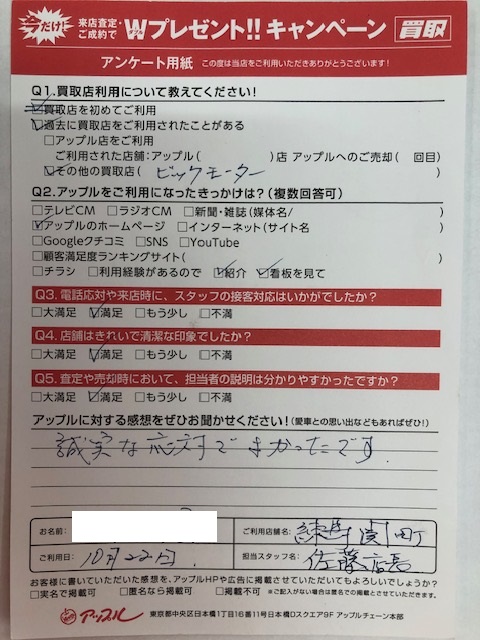 だけ! 来店査定・ご成約で Wプレゼント!! キャンペーン 買取
アンケート用紙 この度は当店をご利用いただきありがとうございます!
Q1.買取店利用について教えてください!
☑買取店を初めてご利用
☑過去に買取店をご利用されたことがある
□アップル店をご利用
ご利用された店舗:アップル( )店 アップルへのご売却( 回目)
☑その他の買取店( ビックモーター )
Q2.アップルをご利用になったきっかけは?(複数回答可)
□テレビCM □ラジオCM □新聞・雑誌(媒体名/ )
☑アップルのホームページ □インターネット(サイト名 )
□Googleクチコミ □SNS □YouTube
□顧客満足度ランキングサイト( )
□チラシ □利用経験があるので ☑紹介 ☑看板を見て
Q3.電話応対や来店時に、スタッフの接客対応はいかがでしたか?
□大満足 ☑満足 □もう少し □不満
Q4.店舗はきれいで清潔な印象でしたか?
□大満足 ☑満足 □もう少し □不満
Q5.査定や売却時において、担当者の説明は分かりやすかったですか?
□大満足 ☑満足 □もう少し □不満
アップルに対する感想をぜひお聞かせください!(愛車との思い出などもあればぜひ!)
誠実な応対でよかったです
お名前: ご利用店舗名: 練馬関町
ご利用日: 10月22日 担当スタッフ名: 佐藤店長
お客様に書いていただいた感想を、アップルHPや広告に掲載させていただいてもよろしいでしょうか?
□実名で掲載可 □匿名なら掲載可 □掲載不可 ※ご記入がない場合は匿名での掲載とさせていただきます。
アップル 東京都中央区日本橋1丁目16番11号日本橋Dスクエア9F アップルチェーン本部